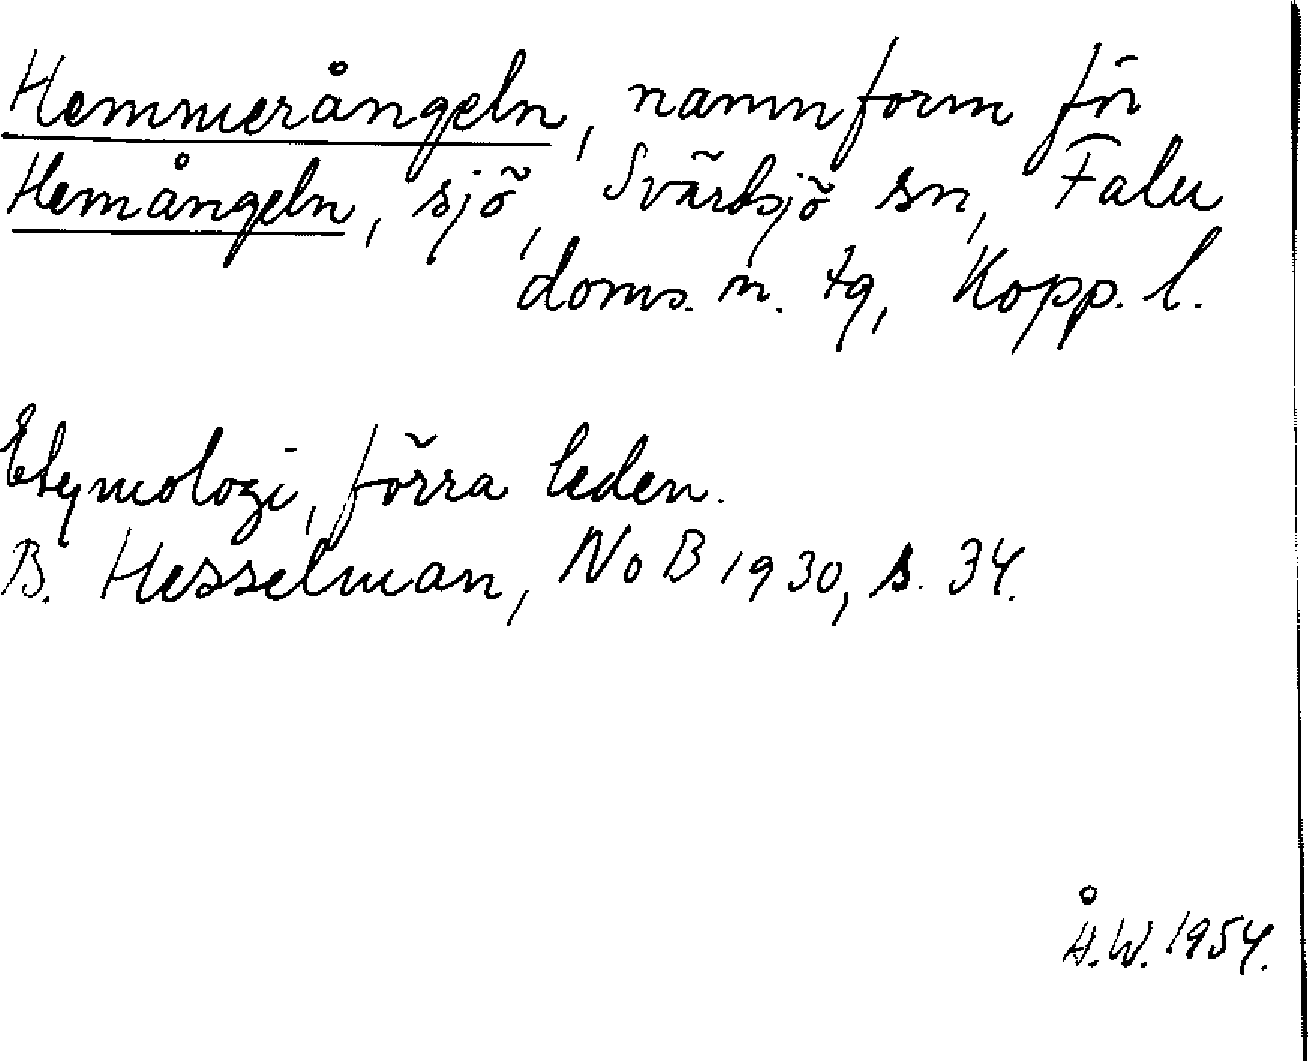 Hemmerången, namnform för
Hemången, sjö, Svärdsjö sn, Falu
doms. n. tg, Kopp. l.
Etymologi, förra leden.
B. Hesselman, NoB 1930, s. 34.
Å.W. 1954.